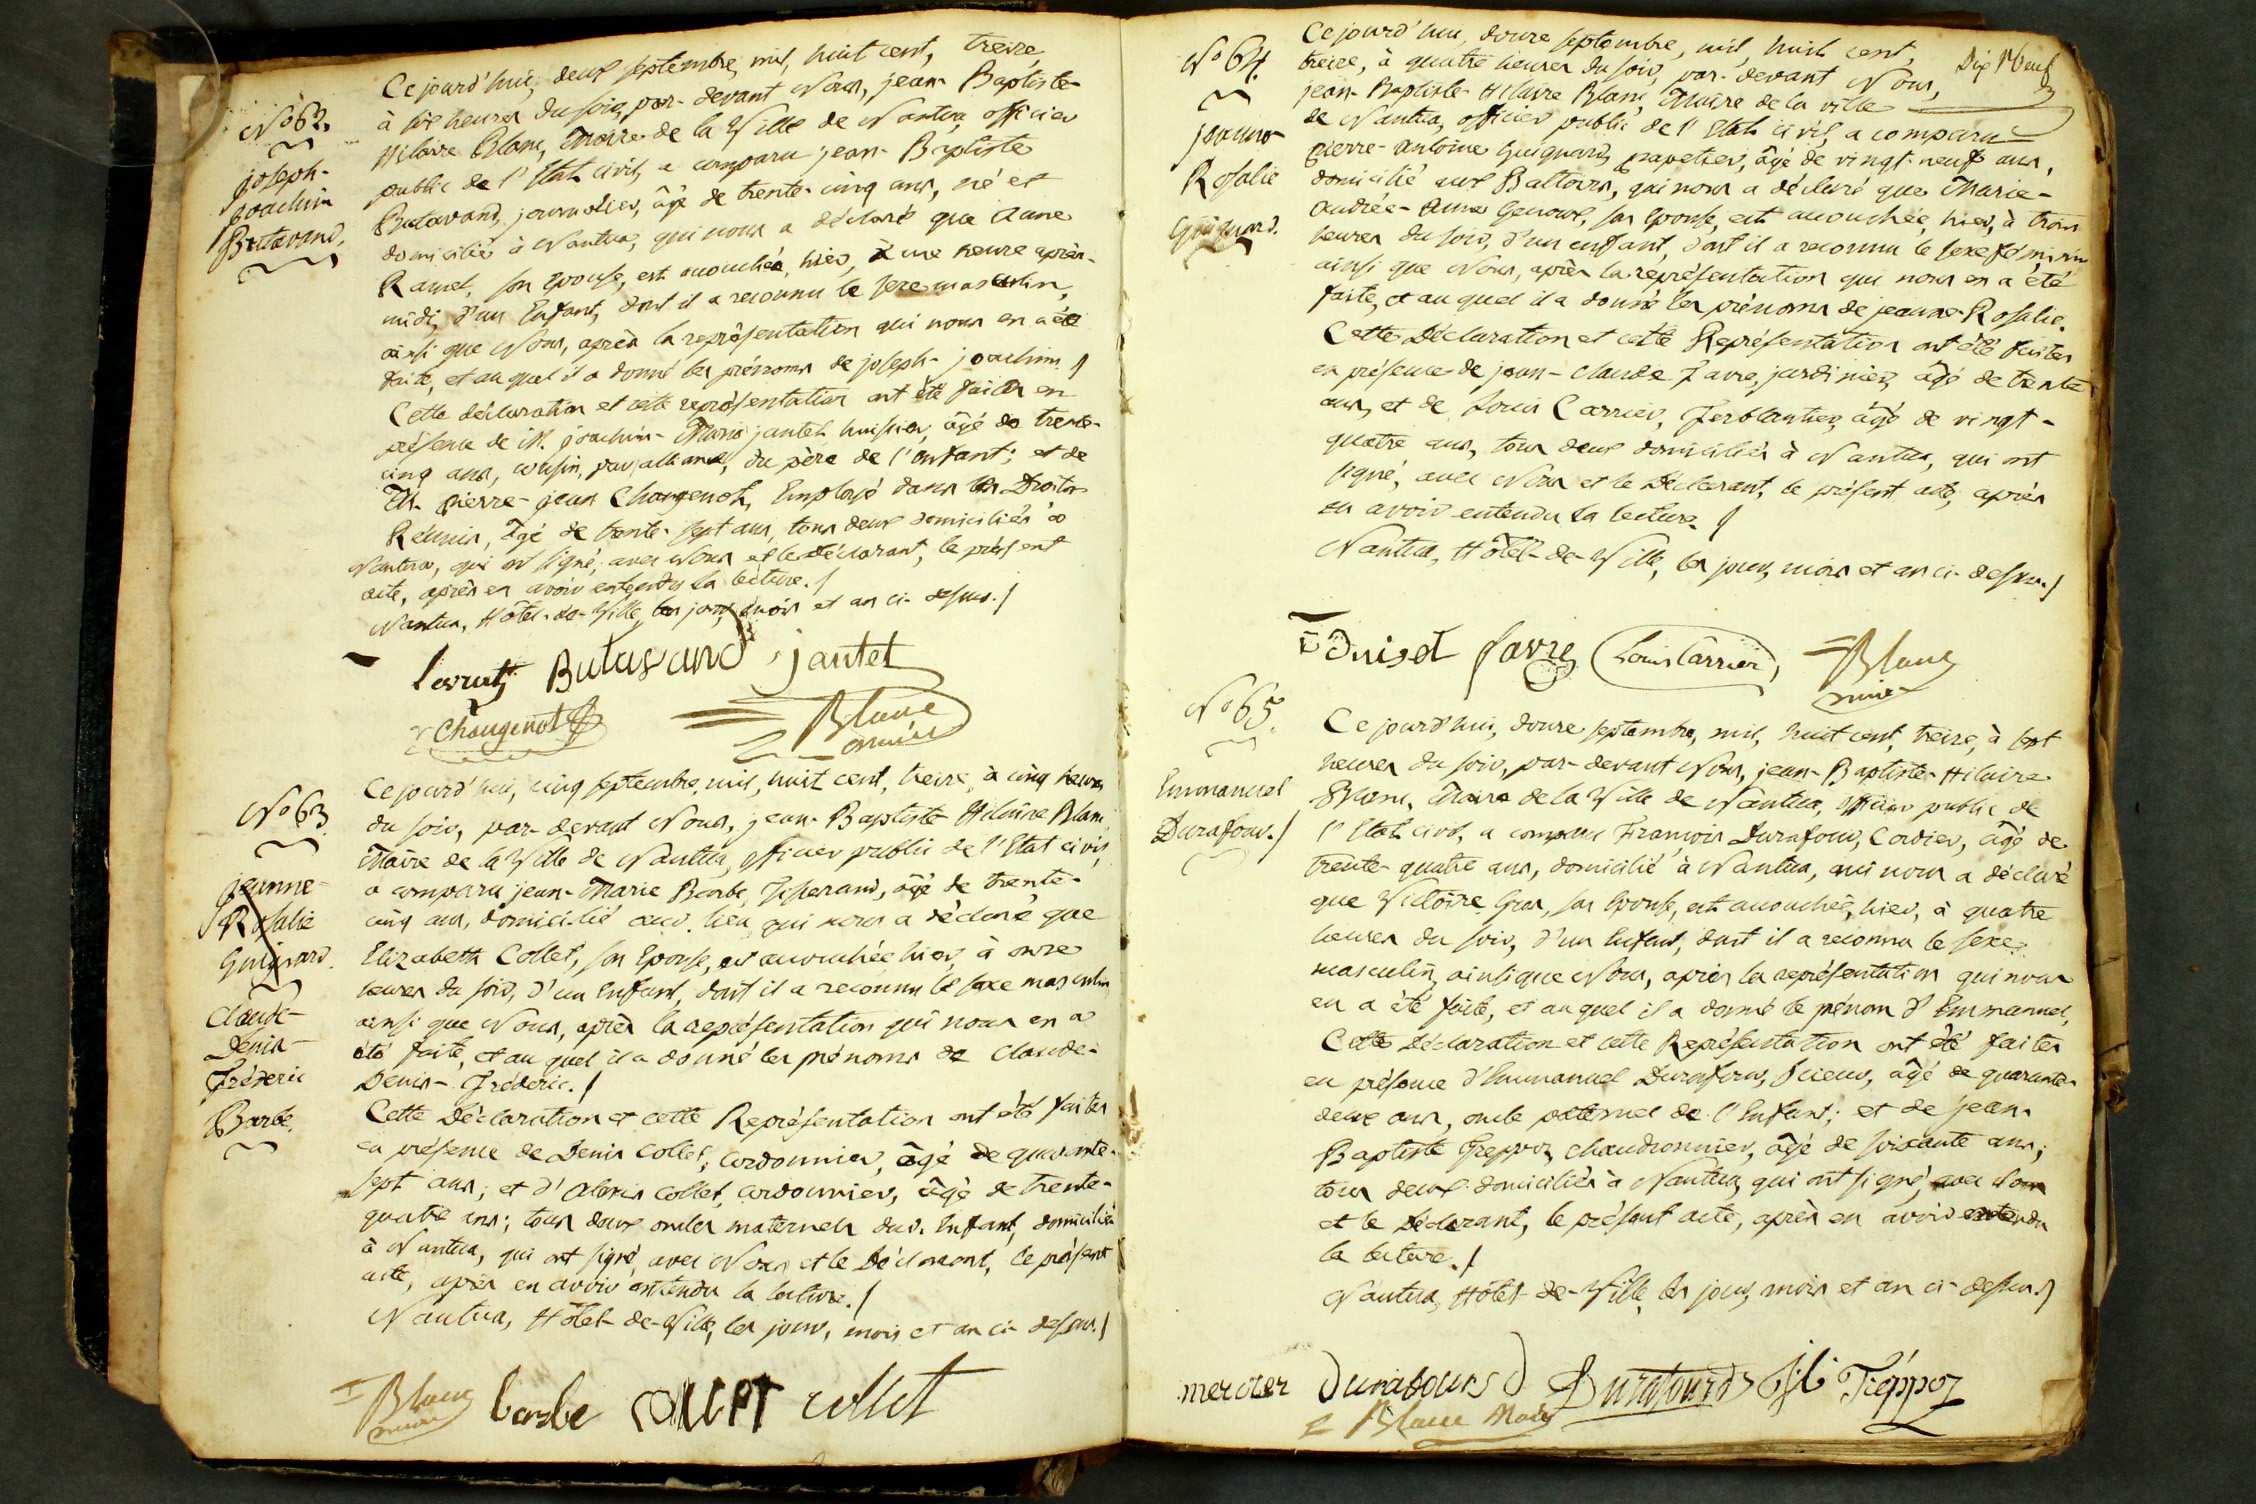 No 62.
joseph-
joachim
Butavand.
Ce jourd'hui, deux septembre, mil, huit cent, treize,
à six heures du soir, par-devant Nous, jean-Baptiste-
Hilaire Blanc, Maire de la Ville de Nantua, officier
public de l'Etat civil, a comparu jean-Baptiste
Butavand, journalier, âgé de trente-cinq ans, né et
domicilié à Nantua, qui nous a déclaré que Anne
Ramel, son Epouse, est accouchée, hier, à une heure après-
midi, d'un Enfant, dont il a reconnu le sexe masculin,
ainsi que Nous, après la représentation qui nous en a été
faite, et au quel il a donné les prénoms de joseph-joachim./
Cette déclaration et cette représentation ont été faites en
présence de M. joachim-Marie jantet, huissier, âgé de trente-
cinq ans, cousin, par alliance, du père de l'enfant; et de
M. pierre-jean Changenot, Employé dans les Droits
Réunis, âgé de trente-sept ans, tous deux domiciliés à
Nantua, qui ont signé, avec Nous et le déclarant, le présent
acte, après en avoir entendu la lecture./
Nantua, Hôtel-de-Ville, les jour, mois et an ci-dessus./
Butavand jantet
Changenot Blanc
maire
No 63.
jeanne-
Rosalie
Guignard.
Claude-
Denis-
Fréderic
Barbe.
Ce jourd'hui, cinq septembre, mil, huit cent, treize, à cinq heures
du soir, par-devant Nous, jean-Baptiste Hilaire Blanc,
Maire de la Ville de Nantua, officier public de l'Etat civil,
a comparu jean-Marie Barbe, Tisserand, âgé de trente-
cinq ans, domicilié aud. lieu, qui nous a déclaré que
Elizabeth Collet, son Epouse, est accouchée, hier, à onze
heures du soir, d'un Enfant, dont il a reconnu le sexe masculin,
ainsi que Nous, après la représentation qui nous en a
été faite, et au quel il a donné les prénoms de Claude-
Denis-Fréderic./
Cette Déclaration et cette Représentation ont été faites
en présence de Denis Collet, Cordonnier, âgé de quarante-
sept ans; et d'Alexis Collet, cordonnier, âgé de trente-
quatre ans; tous deux oncles maternels dud. Enfant, domiciliés
à Nantua, qui ont signé, avec Nous et le Déclarant, le présent
acte, après en avoir entendu la lecture./
Nantua, Hôtel-de-Ville, les jour, mois et an ci-dessus./
Blanc
maire barbe collet collet
Dix Neuf
No 64.
jeanne
Rosalie
Guignard.
Ce jourd'hui, douze septembre, mil, huit cent,
treize, à quatre heures du soir, par-devant Nous,
jean-Baptiste-Hilaire Blanc, Maire de la ville
de Nantua, officier public de l'Etat civil, a comparu
pierre-antoine Guignard, papetier, âgé de vingt-neuf ans,
domicilié aux Battoirs, qui nous a déclaré que Marie-
Andrée-Anne Genoux, son Epouse, est accouchée, hier, à trois
heures du soir, d'un enfant, dont il a reconnu le sexe féminin
ainsi que Nous, après la représentation qui nous en a été
faite, et au quel il a donné les prénoms de jeanne-Rosalie.
Cette Déclaration et cette Représentation ont été faites
en présence de jean-claude Favre, jardinier, âgé de trente
ans, et de Louis Carrier, Ferblantier, âgé de vingt-
quatre ans, tous deux domiciliés à Nantua, qui ont
signé, avec Nous et le Déclarant, le présent acte, après
en avoir entendu la lecture./
Nantua, Hôtel-de-Ville, les jour, mois et an ci-dessus./
favre Louis Carrier Blanc
maire
No 65.
Emmanuel
Durafour./
Ce jourd'hui, douze septembre, mil, huit cent, treize, à sept
heures du soir, par-devant Nous, jean-Baptiste-Hilaire
Blanc, Maire de la Ville de Nantua, officier public de
l'Etat civil, a comparu François Durafour, Cordier, âgé de
trente-quatre ans, domicilié à Nantua, qui nous a déclaré
que Victoire Gros, son Epouse, est accouchée, hier, à quatre
heures du soir, d'un Enfant, dont il a reconnu le sexe
masculin, ainsi que Nous, après la représentation qui nous
en a été faite, et au quel il a donné le prénom d'Emmanuel,
Cette Déclaration et cette Représentation ont été faites
en présence d'Emmanuel Durafour, Scieur, âgé de quarante-
deux ans, oncle paternel de l'Enfant; et de jean-
Baptiste Treppoz, chaudronnier, âgé de soixante ans;
tous deux domiciliés à Nantua, qui ont signé, avec Nous
et le Déclarant, le présent acte, après en avoir entendu
la lecture./
Nantua, Hôtel-de-Ville, les jour, mois et an ci-dessus./
mercier Durafours Durafourd Tréppoz
Blanc Maire